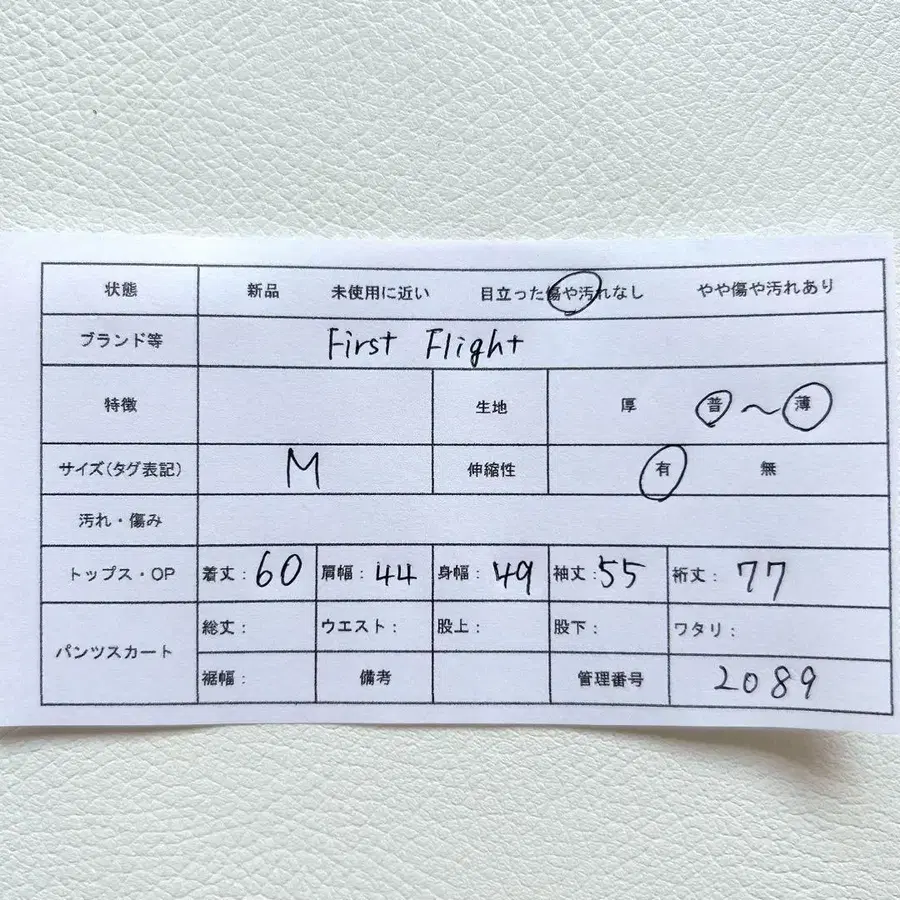 状態 新品 未使用に近い 目立った傷や汚れなし やや傷や汚れあり
ブランド等 First Flight
特徴 生地 厚 普 〜 薄
サイズ(タグ表記) M 伸縮性 有 無
汚れ・傷み
トップス・OP 着丈:60 肩幅:44 身幅:49 袖丈:55 裄丈:77
パンツスカート 総丈: ウエスト: 股上: 股下: ワタリ:
裾幅: 備考 管理番号 2089